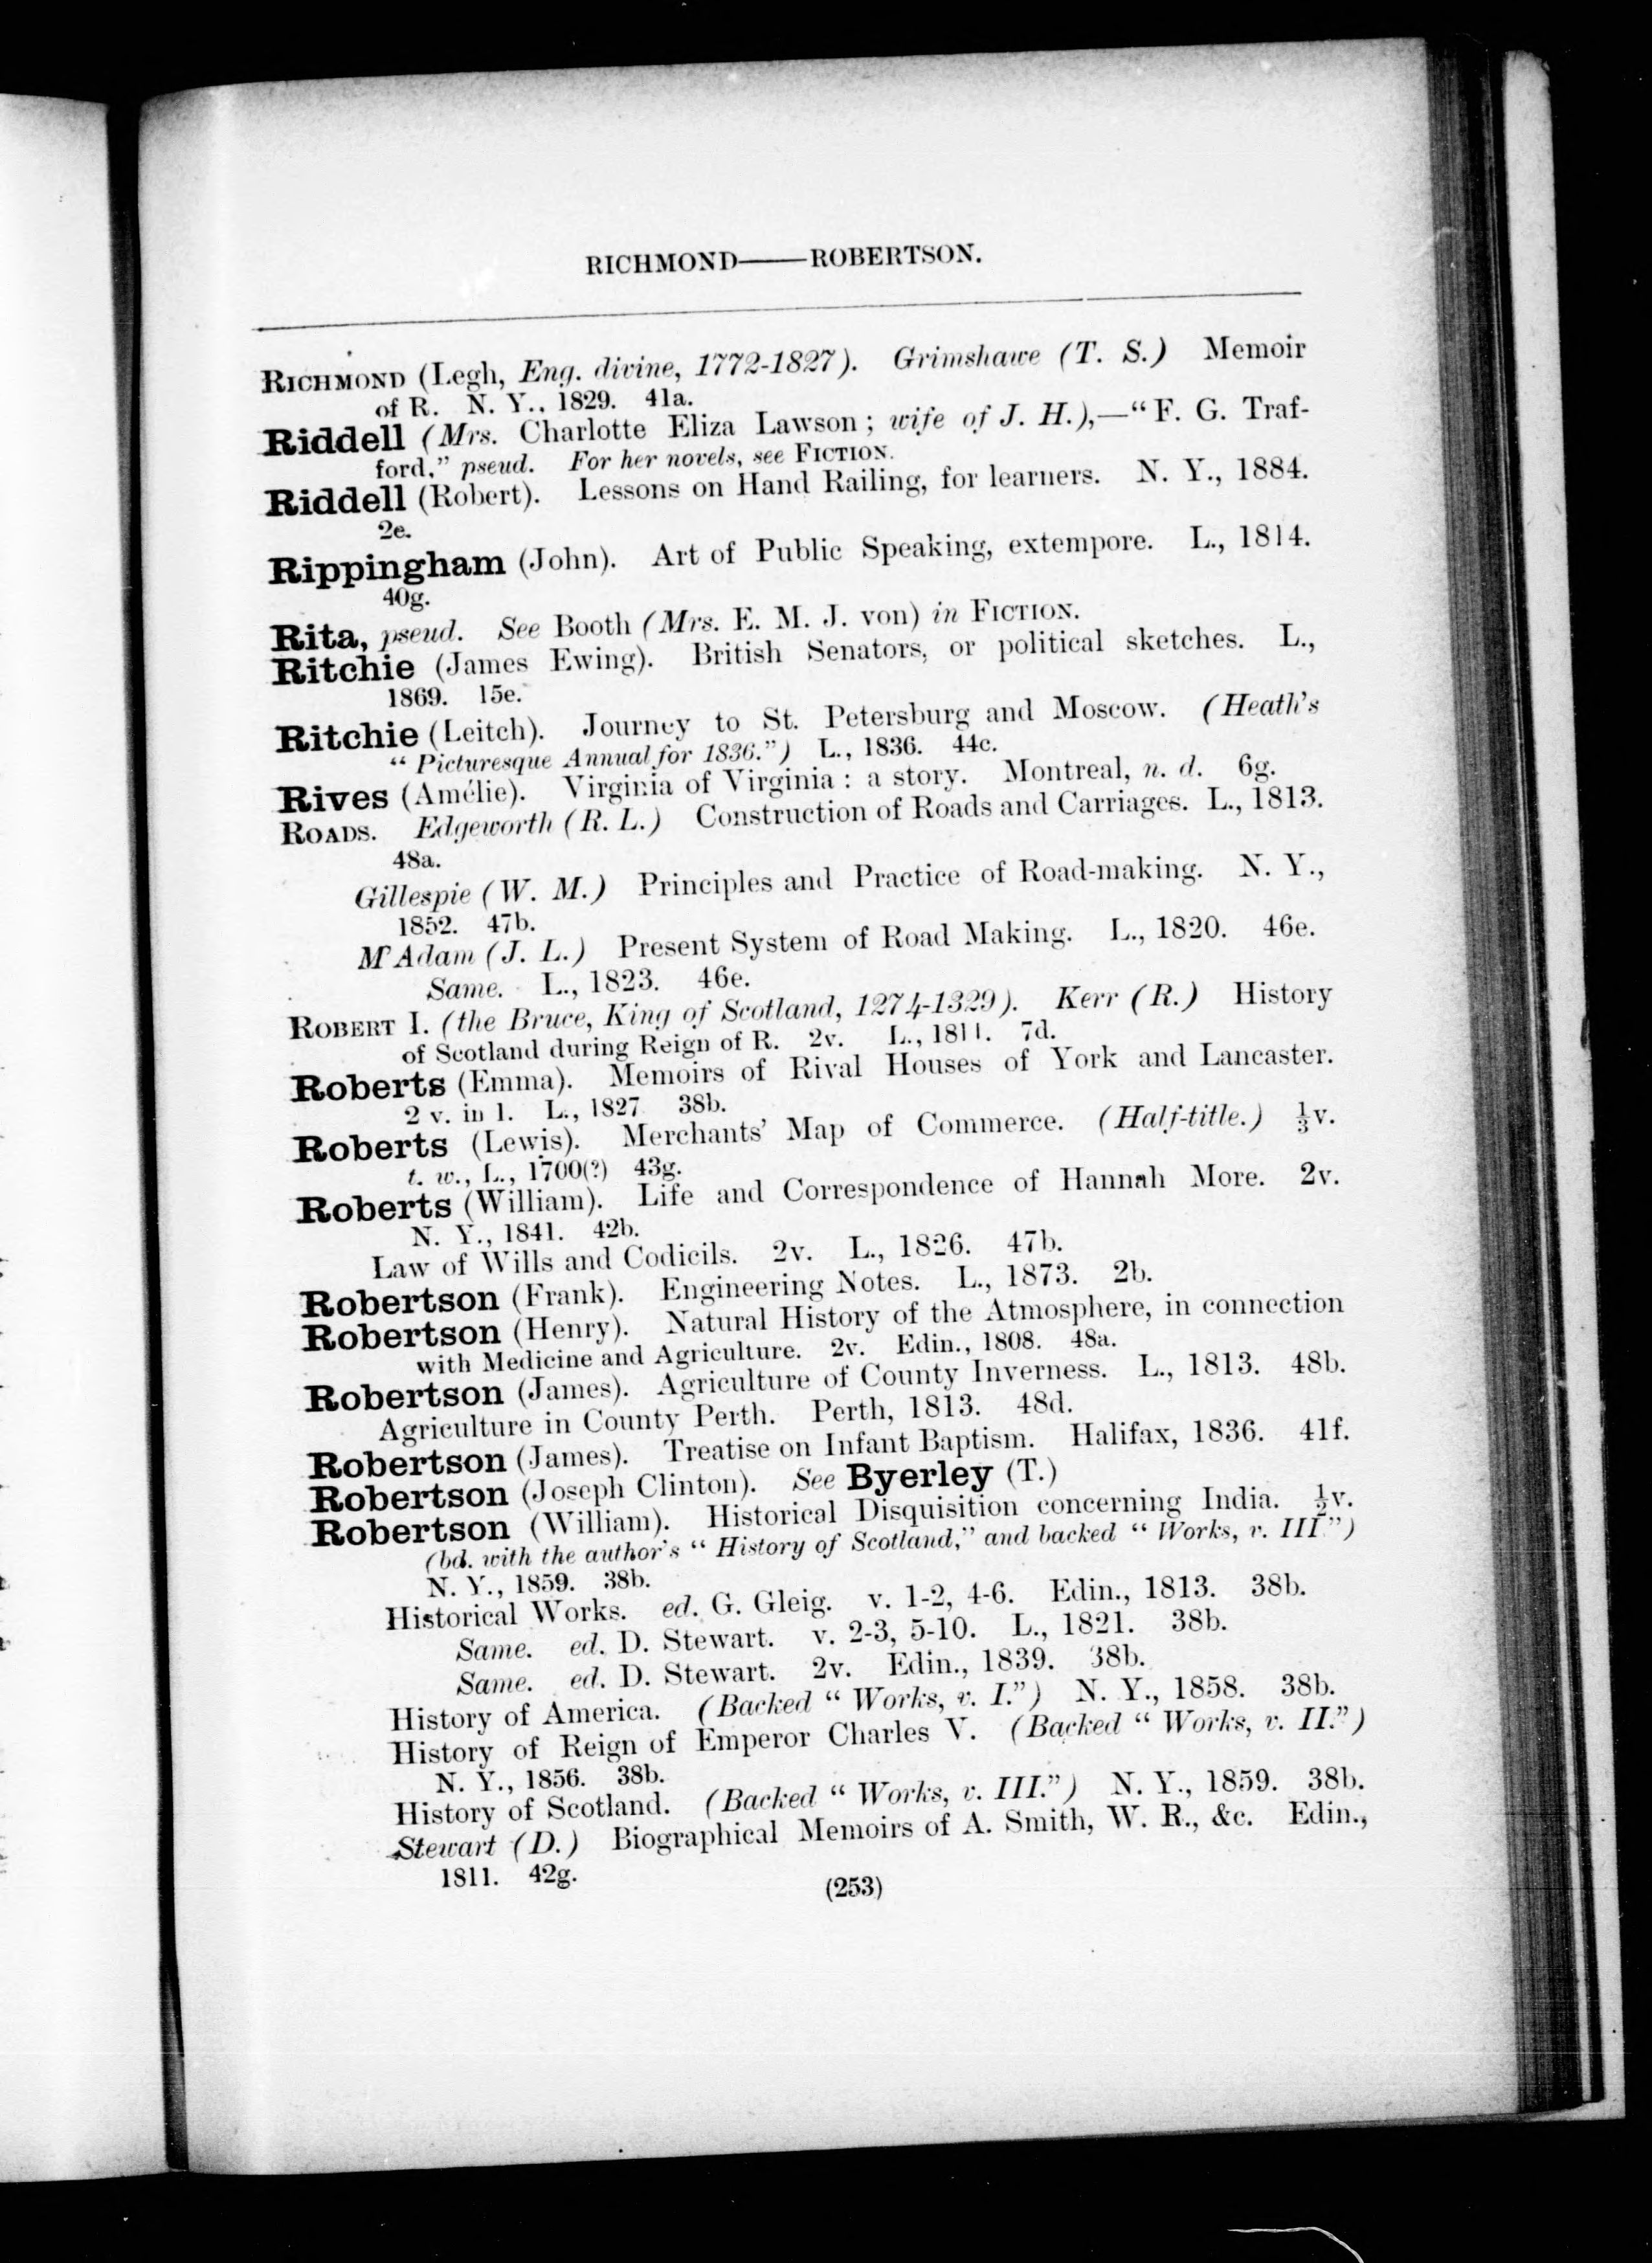 RICHMOND——ROBERTSON.
RICHMOND (Legh, Eng. divine, 1772-1827). Grimshawe (T. S.) Memoir
of R. N. Y., 1829. 41a.
Riddell (Mrs. Charlotte Eliza Lawson; wife of J. H.),—“F. G. Traf-
ford,” pseud. For her novels, see FICTION.
Riddell (Robert). Lessons on Hand Railing, for learners. N. Y., 1884.
2e.
Rippingham (John). Art of Public Speaking, extempore. L., 1814.
40g.
Rita, pseud. See Booth (Mrs. E. M. J. von) in FICTION.
Ritchie (James Ewing). British Senators, or political sketches. L.,
1869. 15e.
Ritchie (Leitch). Journey to St. Petersburg and Moscow. (Heath's
“Picturesque Annual for 1836.”) L., 1836. 44c.
Rives (Amélie). Virginia of Virginia: a story. Montreal, n. d. 6g.
ROADS. Edgeworth (R. L.) Construction of Roads and Carriages. L., 1813.
48a.
Gillespie (W. M.) Principles and Practice of Road-making. N. Y.,
1852. 47b.
McAdam (J. L.) Present System of Road Making. L., 1820. 46e.
Same. L., 1823. 46e.
ROBERT I. (the Bruce, King of Scotland, 1274-1329). Kerr (R.) History
of Scotland during Reign of R. 2v. L., 1811. 7d.
Roberts (Emma). Memoirs of Rival Houses of York and Lancaster.
2 v. in 1. L., 1827 38b.
Roberts (Lewis). Merchants' Map of Commerce. (Half-title.) ⅓v.
t. w., L., 1700(?) 43g.
Roberts (William). Life and Correspondence of Hannah More. 2v.
N. Y., 1841. 42b.
Law of Wills and Codicils. 2v. L., 1826. 47b.
Robertson (Frank). Engineering Notes. L., 1873. 2b.
Robertson (Henry). Natural History of the Atmosphere, in connection
with Medicine and Agriculture. 2v. Edin., 1808. 48a.
Robertson (James). Agriculture of County Inverness. L., 1813. 48b.
Agriculture in County Perth. Perth, 1813. 48d.
Robertson (James). Treatise on Infant Baptism. Halifax, 1836. 41f.
Robertson (Joseph Clinton). See Byerley (T.)
Robertson (William). Historical Disquisition concerning India. ½v.
(bd. with the author's “History of Scotland,” and backed “Works, v. III”)
N. Y., 1859. 38b.
Historical Works. ed. G. Gleig. v. 1-2, 4-6. Edin., 1813. 38b.
Same. ed. D. Stewart. v. 2-3, 5-10. L., 1821. 38b.
Same. ed. D. Stewart. 2v. Edin., 1839. 38b.
History of America. (Backed “Works, v. I.”) N. Y., 1858. 38b.
History of Reign of Emperor Charles V. (Backed “Works, v. II.”)
N. Y., 1856. 38b.
History of Scotland. (Backed “Works, v. III.”) N. Y., 1859. 38b.
Stewart (D.) Biographical Memoirs of A. Smith, W. R., &c. Edin.,
1811. 42g.
(253)